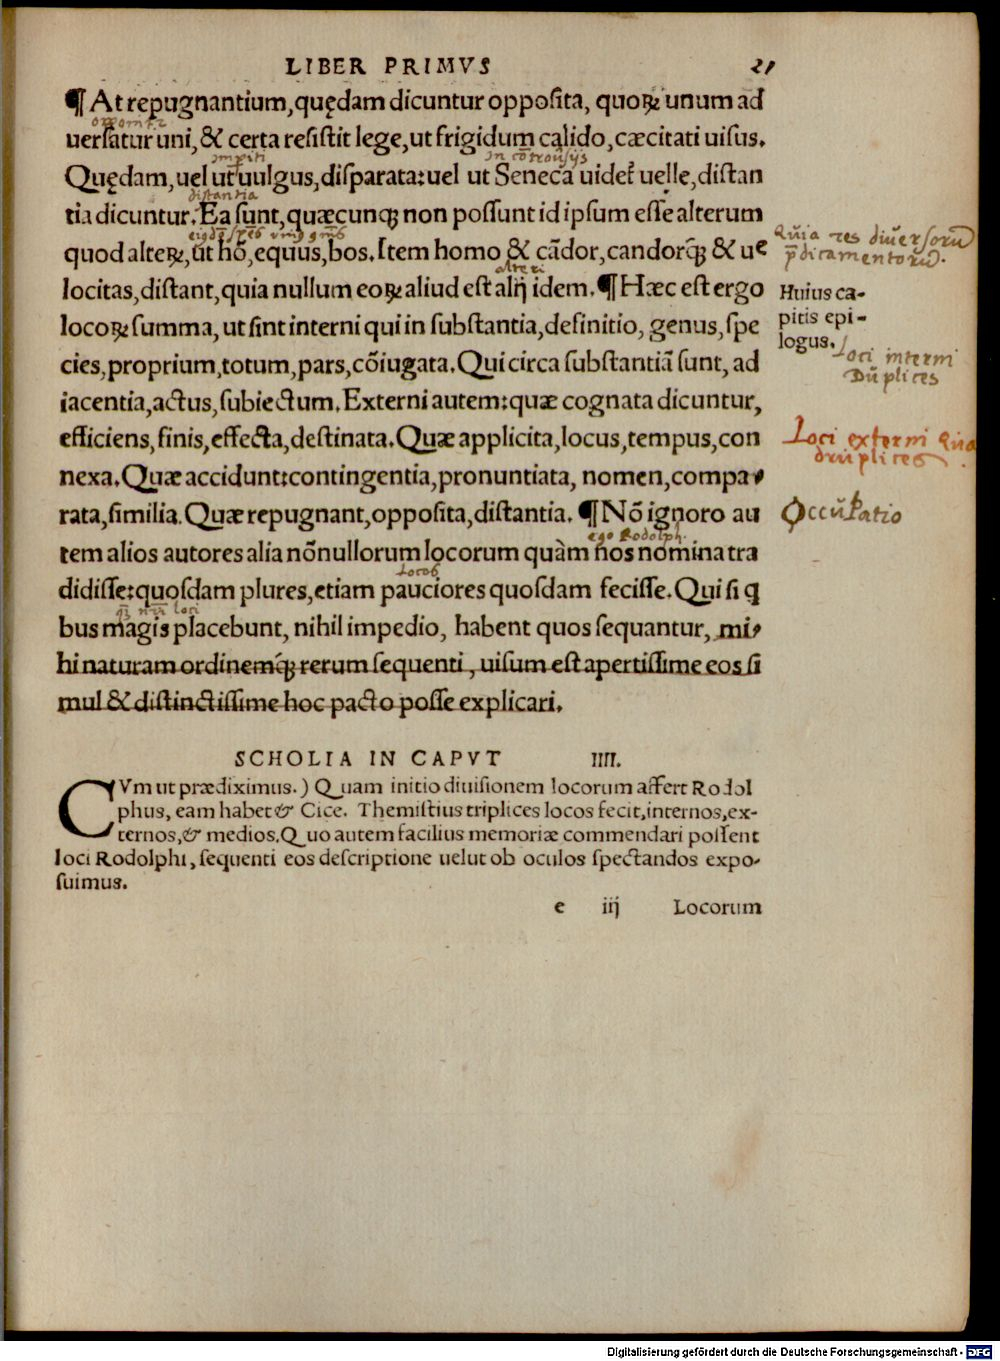 LIBER PRIMVS 21
¶ At repugnantium, quędam dicuntur opposita, quoꝝ unum ad
opponit̃
uersatur uni, & certa resistit lege, ut frigidum calido, cæcitati uisus.
impiti in cõtrouersijs
Quędam, uel ut uulgus, disparata: uel ut Seneca uidet᷑ uelle, distan
distantia
tia dicuntur. Ea sunt, quæcunq; non possunt id ipsum esse alterum
quod alteꝝ, ut hõ, equus, bos. Item homo & cãdor, candorq́; & ue
Quia res diuersorũ
p̃dicamentorũ.
alteri
locitas, distant, quia nullum eoꝝ aliud est alij idem. ¶ Hæc est ergo
Huius ca-
pitis epi-
logus.
locoꝝ summa, ut sint interni qui in substantia, definitio, genus, spe
Loci interni
Dũplices
cies, proprium, totum, pars, cõiugata. Qui circa substantiã sunt, ad
iacentia, actus, subiectum. Externi autem: quæ cognata dicuntur,
efficiens, finis, effecta, destinata. Quæ applicita, locus, tempus, con
Loci externi Qua
druplices.
nexa. Quæ accidunt: contingentia, pronuntiata, nomen, compa-
rata, similia. Quæ repugnant, opposita, distantia. ¶ Nõ ignoro au
Occupatio
ego Rodolph.
tem alios autores alia nõnullorum locorum quàm nos nomina tra
Locos
didisse: quosdam plures, etiam pauciores quosdam fecisse. Qui si q̃
loci
bus magis placebunt, nihil impedio, habent quos sequantur, mi-
hi naturam ordinemq́; rerum sequenti, uisum est apertissime eos si
mul & distinctissime hoc pacto posse explicari.
SCHOLIA IN CAPVT IIII.
CVm ut prædiximus.) Quam initio diuisionem locorum affert Rodol
phus, eam habet & Cice. Themistius triplices locos fecit, internos, ex-
ternos, & medios. Quo autem facilius memoriæ commendari possent
loci Rodolphi, sequenti eos descriptione uelut ob oculos spectandos expo-
suimus.
e iij Locorum
Digitalisierung gefördert durch die Deutsche Forschungsgemeinschaft - DFG